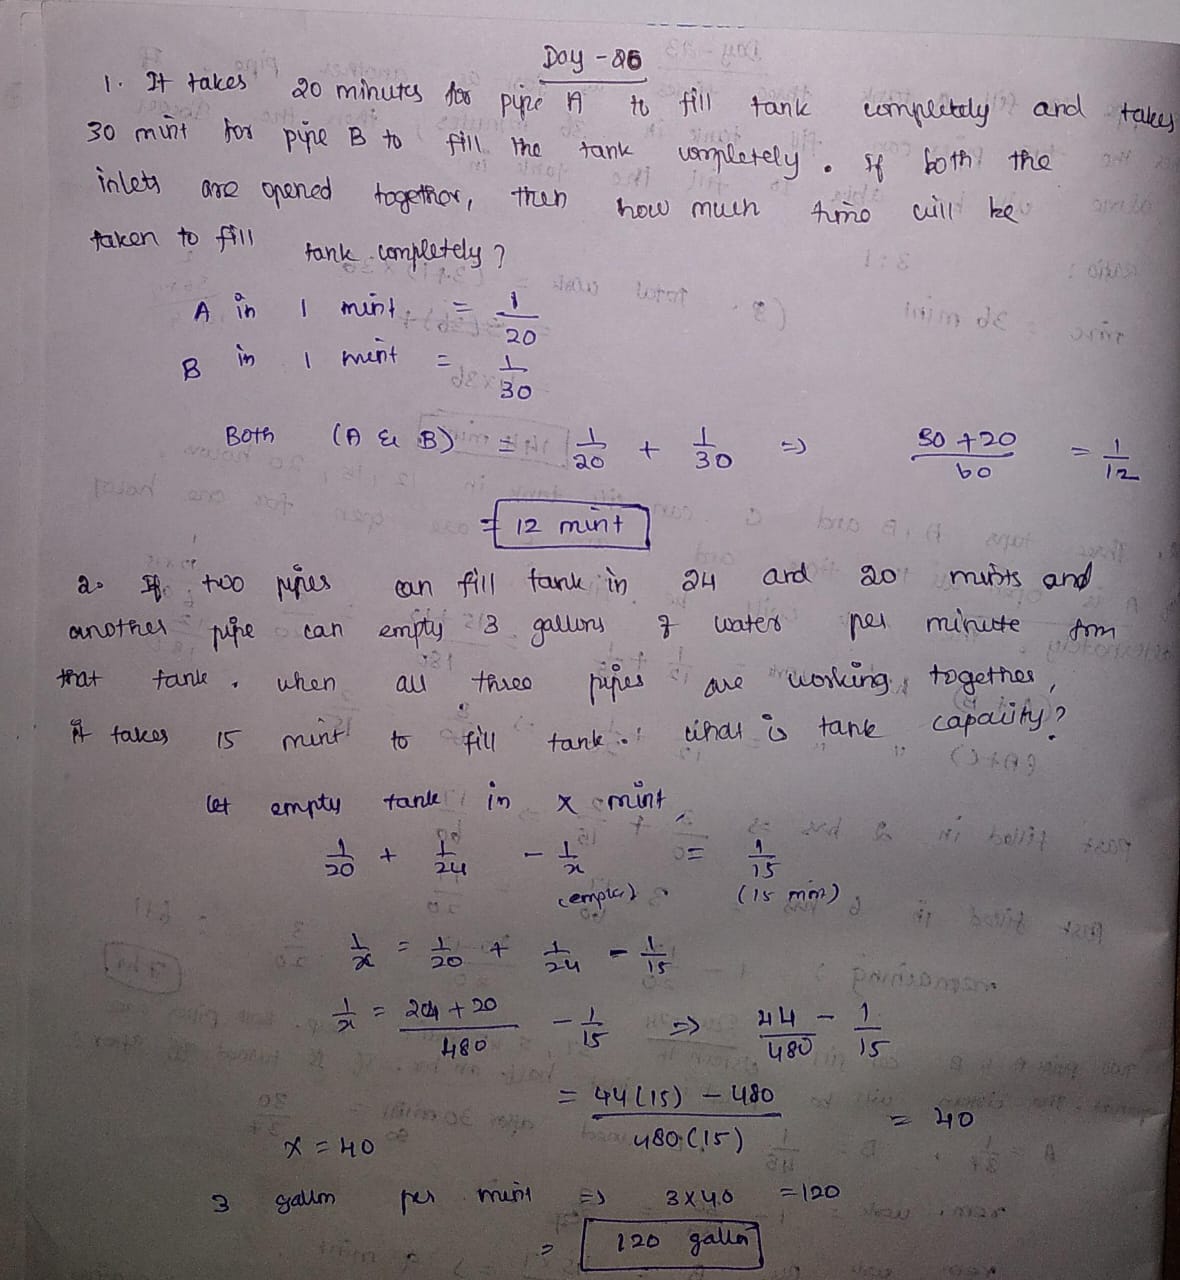 Day - 26
1. It takes 20 minutes for pipe A to fill tank completely and takes
30 mint for pipe B to fill the tank completely. If both the
inlets are opened together, then how much time will be
taken to fill tank completely?
A in 1 mint = 1/20
B in 1 mint = 1/30
Both (A & B) = 1/20 + 1/30 => 30+20/60 = 1/12
= 12 mint
2. If two pipes can fill tank in 24 and 20 mints and
another pipe can empty 3 gallons of water per minute from
that tank. when all three pipes are working together,
it takes 15 mint to fill tank. what is tank capacity?
let empty tank in x mint
1/20 + 1/24 - 1/x = 1/15
(15 min)
1/x = 1/20 + 1/24 - 1/15
1/x = 24+20/480 - 1/15 => 44/480 - 1/15
= 44(15) - 480/480(15) = 40
x = 40
3 gallon per mint => 3x40 = 120
= 120 gallon